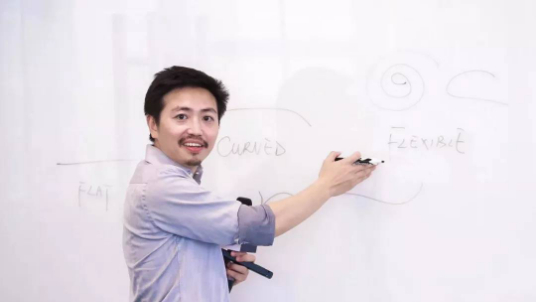 FLAT
CURVED
FLEXIBLE